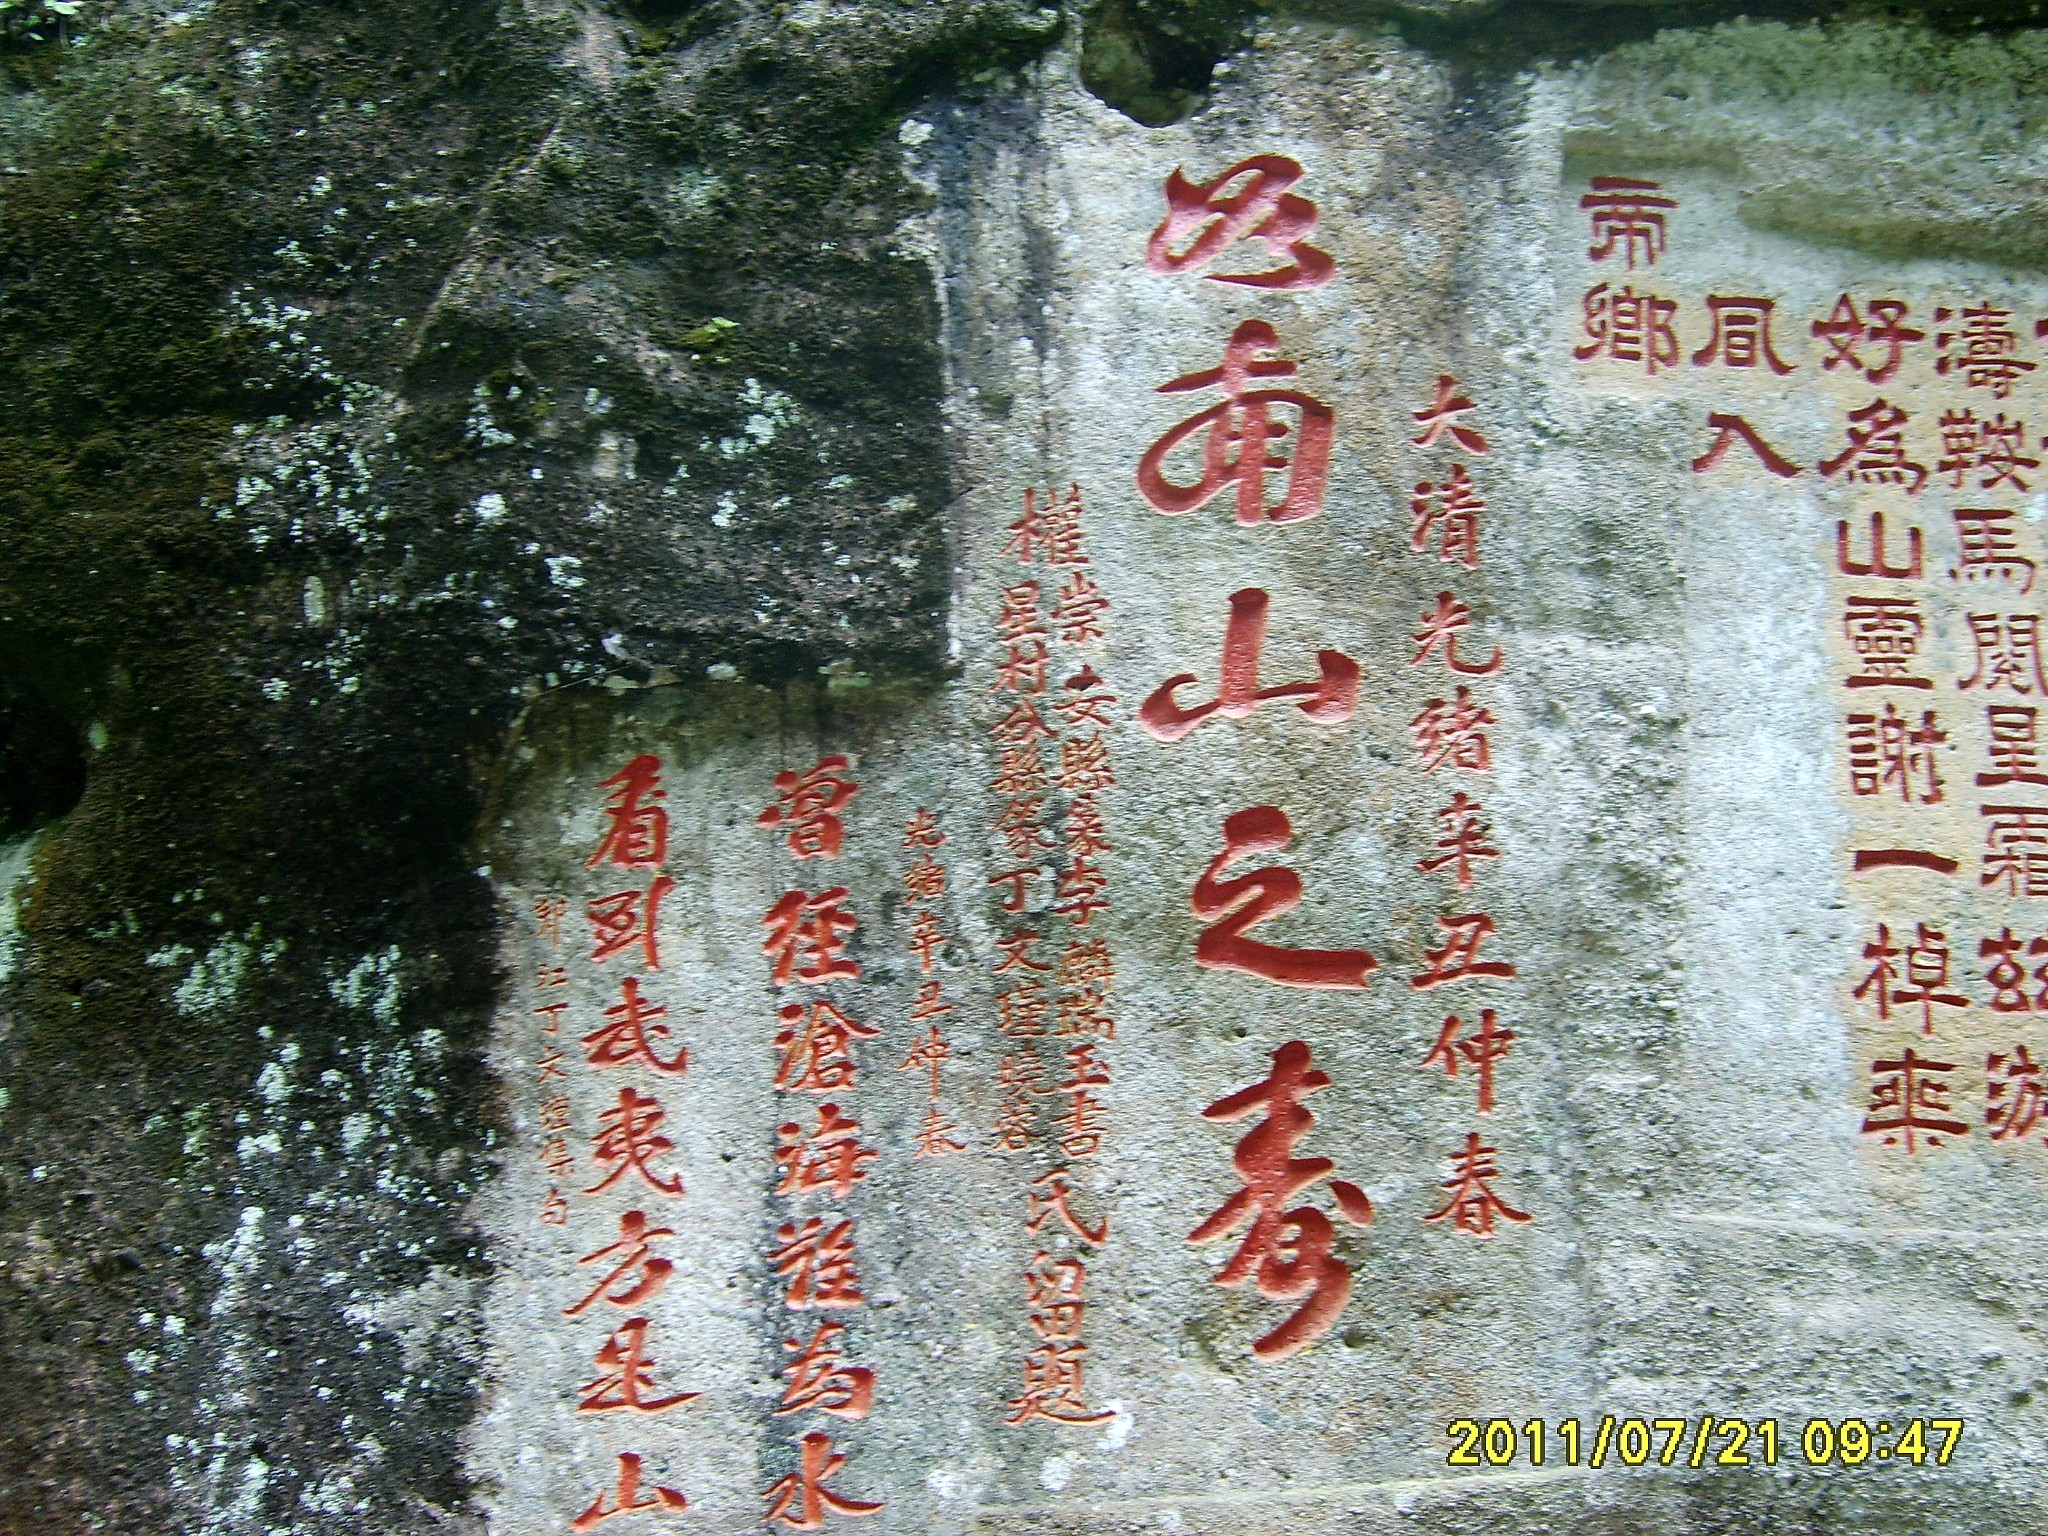 濤鞍馬閱星霜茲游
好為山靈謝一棹來
入
帝鄉
大清光緒辛丑仲春
如南山之壽
權崇安縣篆李麟瑞玉書
星村分縣篆丁文瑾曉蓉
氏留題
光緒辛丑仲春
曾經滄海難為水
看到武夷方是山
邗江丁文瑾集句
2011/07/21 09:47